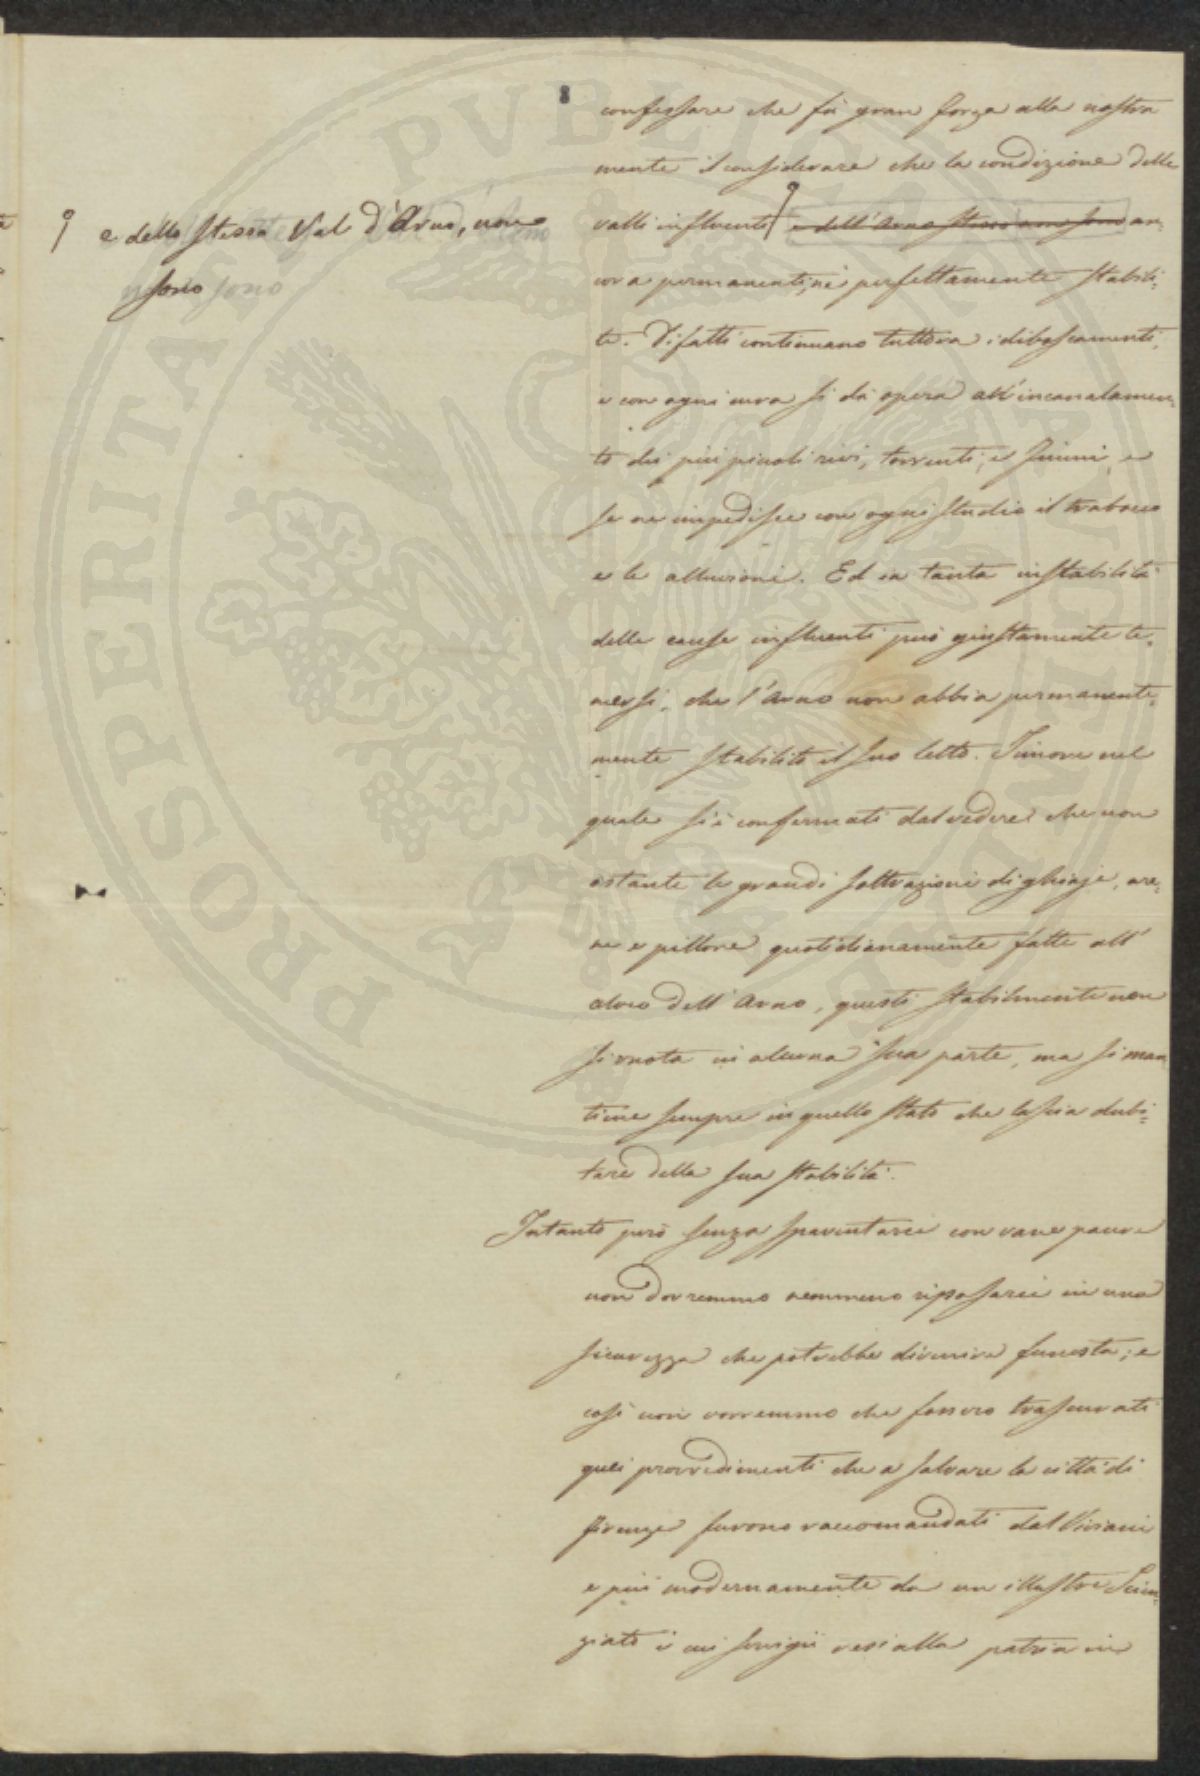 PROSPERITAS PVBLICA
confessare che fà gran forza alla nostra
mente il considerare che la condizione delle
valli influenti e dell'Arno stesso non sono an:
e dello stesso Val d'Arno, non
sono
cora permanenti, nè perfettamente stabili:
te. Difatti continuano tuttora i diboscamenti,
e con ogni cura si dà opera all'incanalamen:
to dei più piccoli rivi, torrenti, e fiumi, e
se ne impedisce con ogni studio il trabocco
e le alluvioni. Ed in tanta instabilità
delle cause influenti può giustamente te:
mersi, che l'Arno non abbia permanente:
mente stabilito il suo letto. Timore nel
quale si è confermati dal vedere che non
ostante le grandi sottrazioni di ghiaje, are:
ne e pillore quotidianamente fatte all'
alveo dell'Arno, questi stabilmente non
si vuota in alcuna sua parte, ma si man
tiene sempre in quello stato che lascia dubi:
tare della sua stabilità.
Intanto però senza spaventarci con vane paure
non dovremmo nemmeno riposarci in una
sicurezza che potrebbe divenire funesta; e
così non vorremmo che fossero trascurati
quei provvedimenti che a salvare la città di
Firenze furono raccomandati dal Viviani
e più modernamente da un illustre Scien:
ziato i cui servigii resi alla patria in